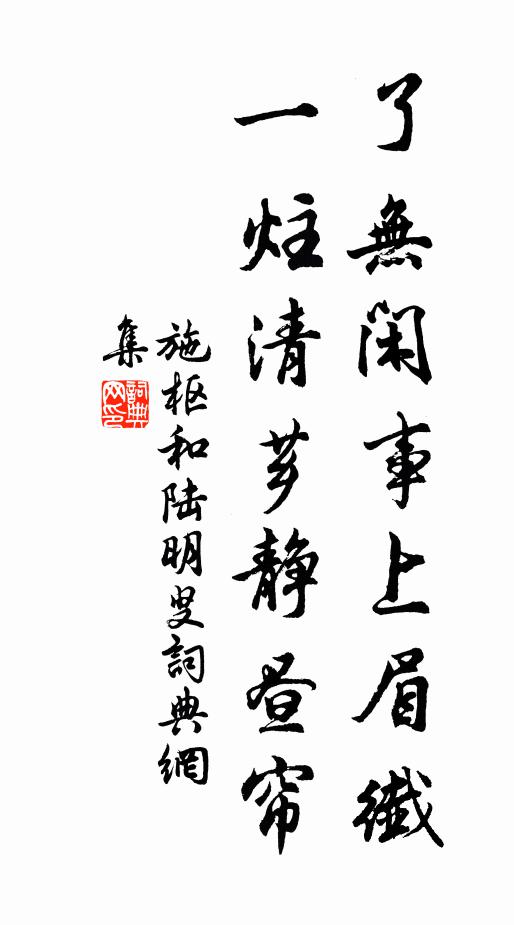 了無閑事上眉纖
一炷清芗静昼帘
施枢和陆明叟詞典網
集
詞典
网印